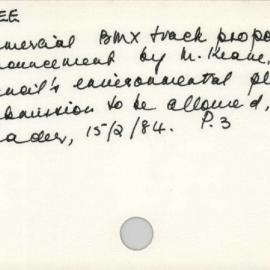 EE
mmercial BMX track propo
nouncement by M. Keane,
uncil's environmental pl
bmission to be allowed,
ader, 15/2/84. P.3